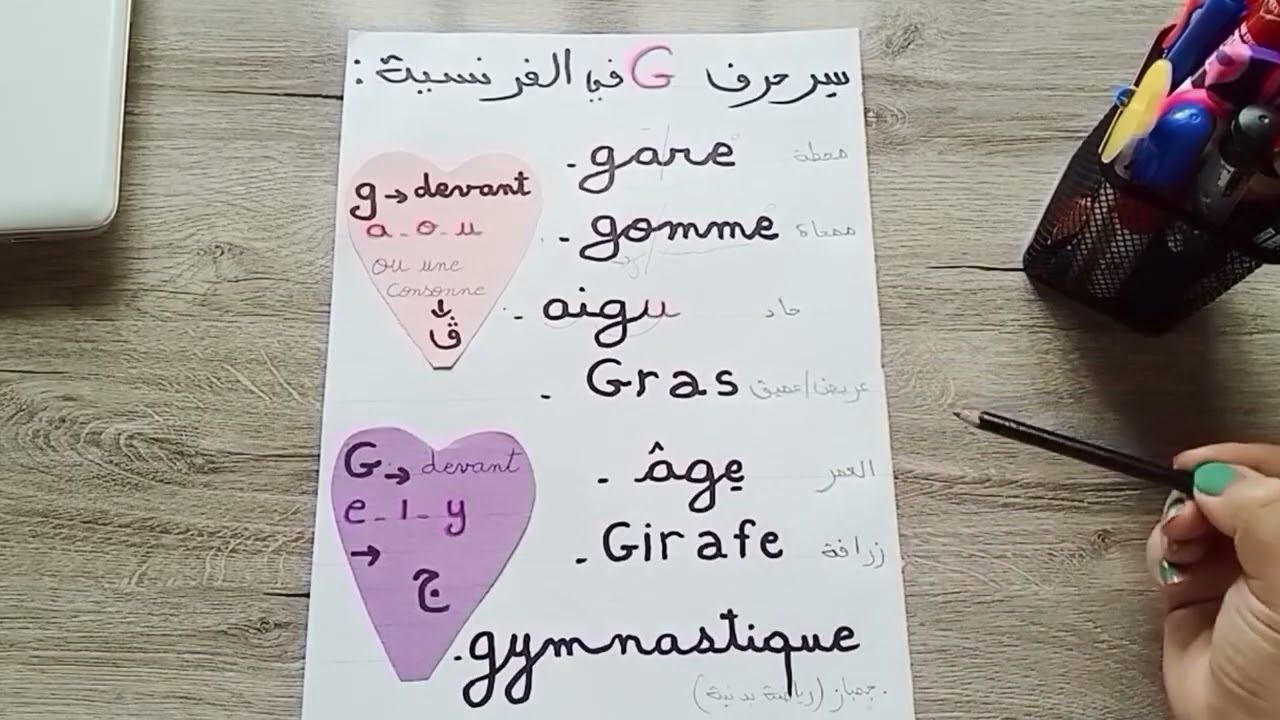 سر حرف G في الفرنسية :
g → devant
a - o - u
ou une
consonne
↓
ڨ
- gare محطة
- gomme ممحاة
- aigu حاد
- Gras عريض/عميق
G → devant
e - i - y
→
ج
- âge العمر
- Girafe زرافة
- gymnastique
جمباز (رياضة بدنية).